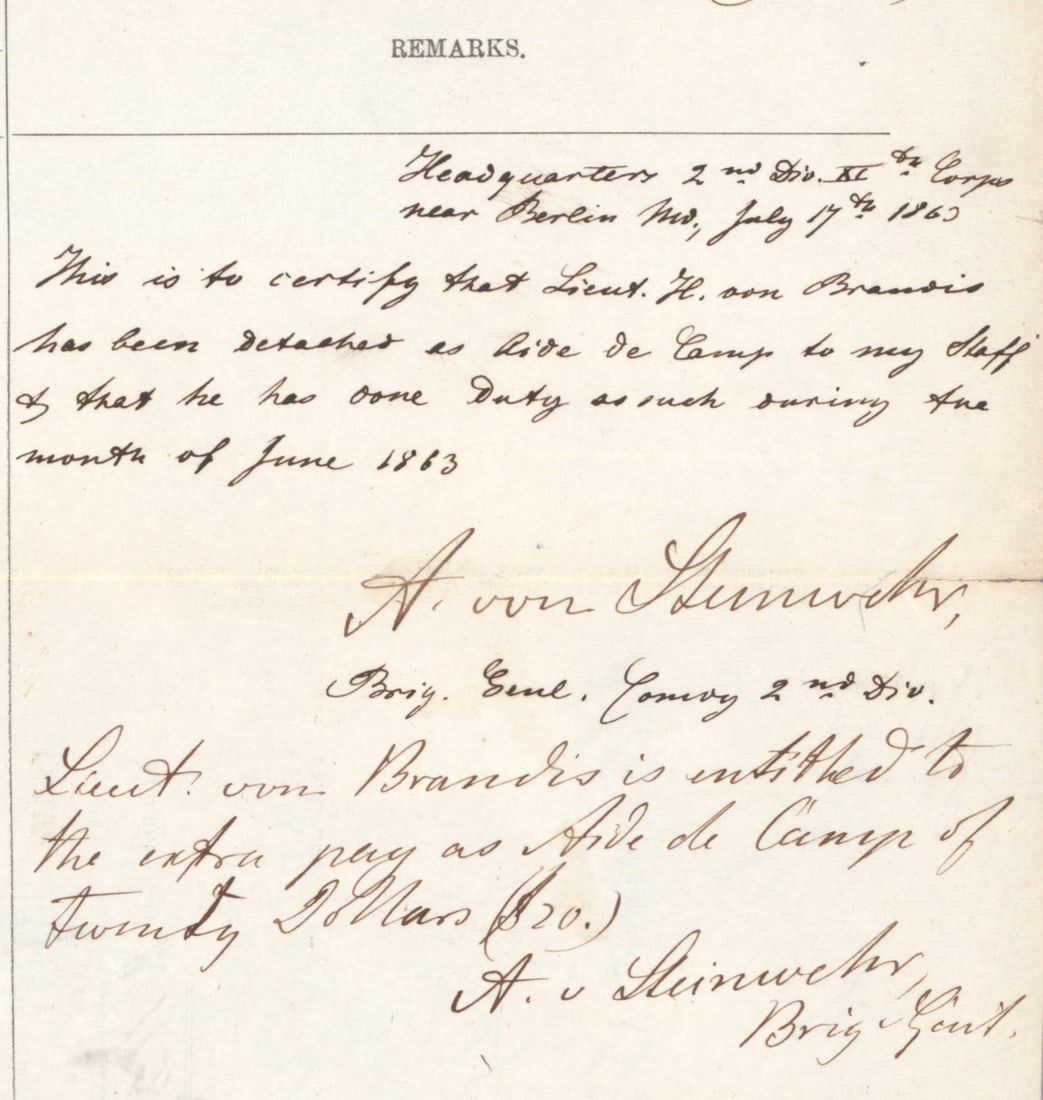 REMARKS.
Headquarters 2nd Div. XIth Corps
near Berlin Md., July 17th 1863
This is to certify that Lieut. H. von Brandis
has been detached as Aide de Camp to my Staff
& that he has done Duty as such during the
month of June 1863
A. von Steinwehr,
Brig. Genl. Comdg 2nd Div.
Lieut. von Brandis is entitled to
the extra pay as Aide de Camp of
twenty Dollars ($20.)
A. v Steinwehr,
Brig Genl.